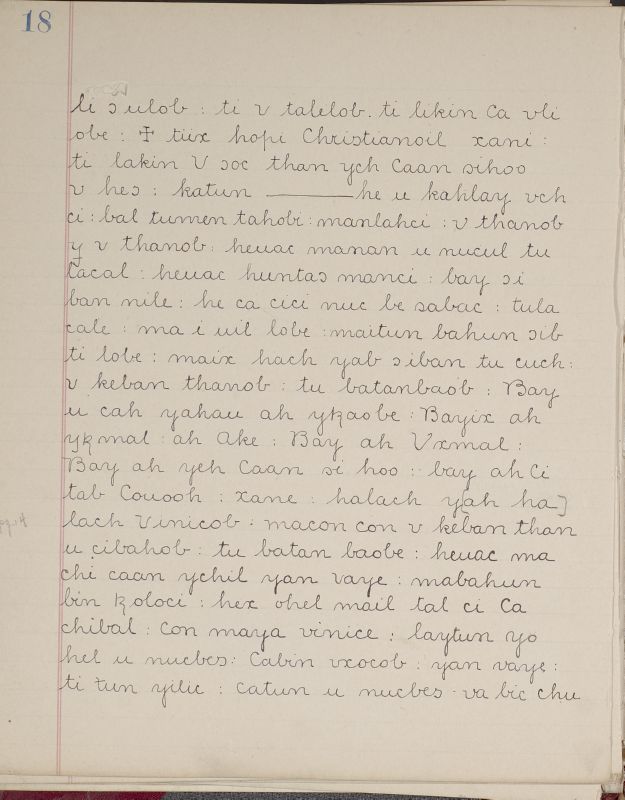 18
li ɔulob : ti v talelob. ti likin Ca vli
obe : ✠ tiix hopi Christianoil xani :
ti lakin V ɔoc than ych Caan sihoo
v hes : katun ——— he u kahlay vch
ci : bal tumen tahobi : manlahci : v thanob
y v thanob : heuac manan u nucul tu
lacal : heuac huntas manci : bay si
ban nile : he ca cici nuc be sabac : tula
cale : ma i uil lobe : maitun bahun ɔib
ti lobe : maix hach yab ɔiban tu cuch :
v keban thanob : tu batanbaob : Bay
u cah yahau ah yꜩaobe : Bayix ah
yꜩmal : ah Ake : Bay ah Vxmal :
Bay ah ych Caan si hoo : bay ah Ci
tab Couooh : xane : halach yah ha]
lach Vinicob : macon con v keban than
u cibahob : tu batan baobe : heuac ma
chi caan ychil yan vaye : mabahun
bin ꜩoloci : hex ohel mail tal ci Ca
chibal : con maya vinice : laytun yo
hel u nucbes : Cabin vxocob : yan vaye :
ti tun yilic : catun u nucbes · va bic chu